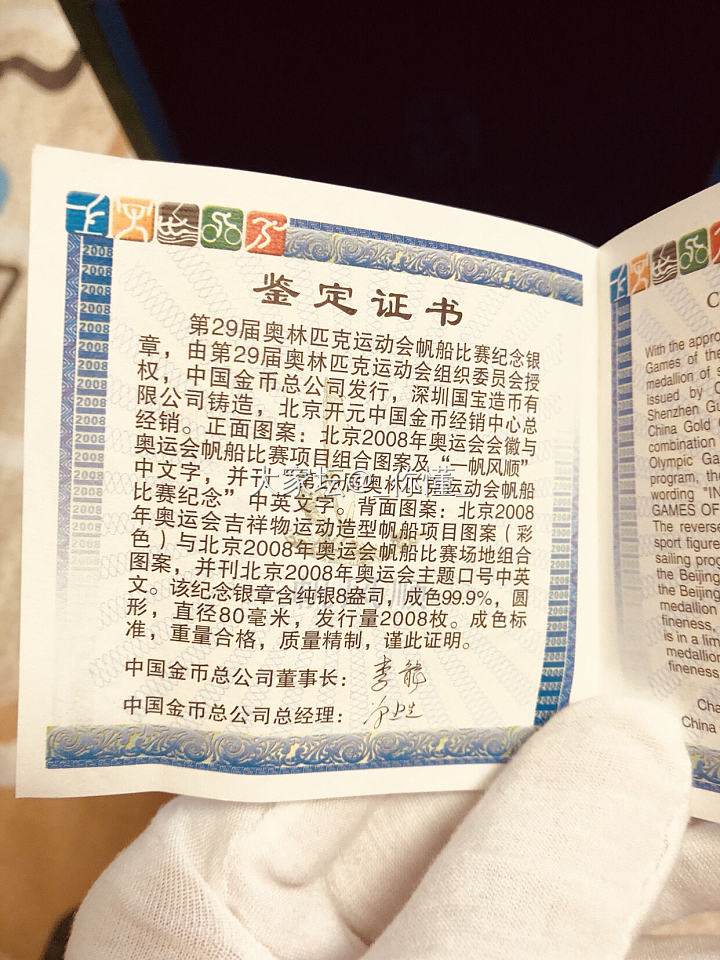 2008
2008
2008
2008
2008
2008
2008
2008
2008
2008
2008
鉴定证书
第29届奥林匹克运动会帆船比赛纪念银
章，由第29届奥林匹克运动会组织委员会授
权，中国金币总公司发行，深圳国宝造币有
限公司铸造，北京开元中国金币经销中心总
经销。正面图案：北京2008年奥运会会徽与
奥运会帆船比赛项目组合图案及“一帆风顺”
中文字，并刊“第29届奥林匹克运动会帆船
比赛纪念”中英文字。背面图案：北京2008
年奥运会吉祥物运动造型帆船项目图案（彩
色）与北京2008年奥运会帆船比赛场地组合
图案，并刊北京2008年奥运会主题口号中英
文。该纪念银章含纯银8盎司，成色99.9%，圆
形，直径80毫米，发行量2008枚。成色标
准，重量合格，质量精制，谨此证明。
中国金币总公司董事长：
中国金币总公司总经理：
大家坛@
你懂
C
With the appro
Games of the
medallion of s
issued by C
Shenzhen Gu
China Gold C
combination
Olympic Ga
program, the
wording "IN
GAMES OF
The reverse
sport figure
sailing prog
the Beijing
the Beijing
medallion
fineness,
is in a lim
medallion
fineness
Cha
China